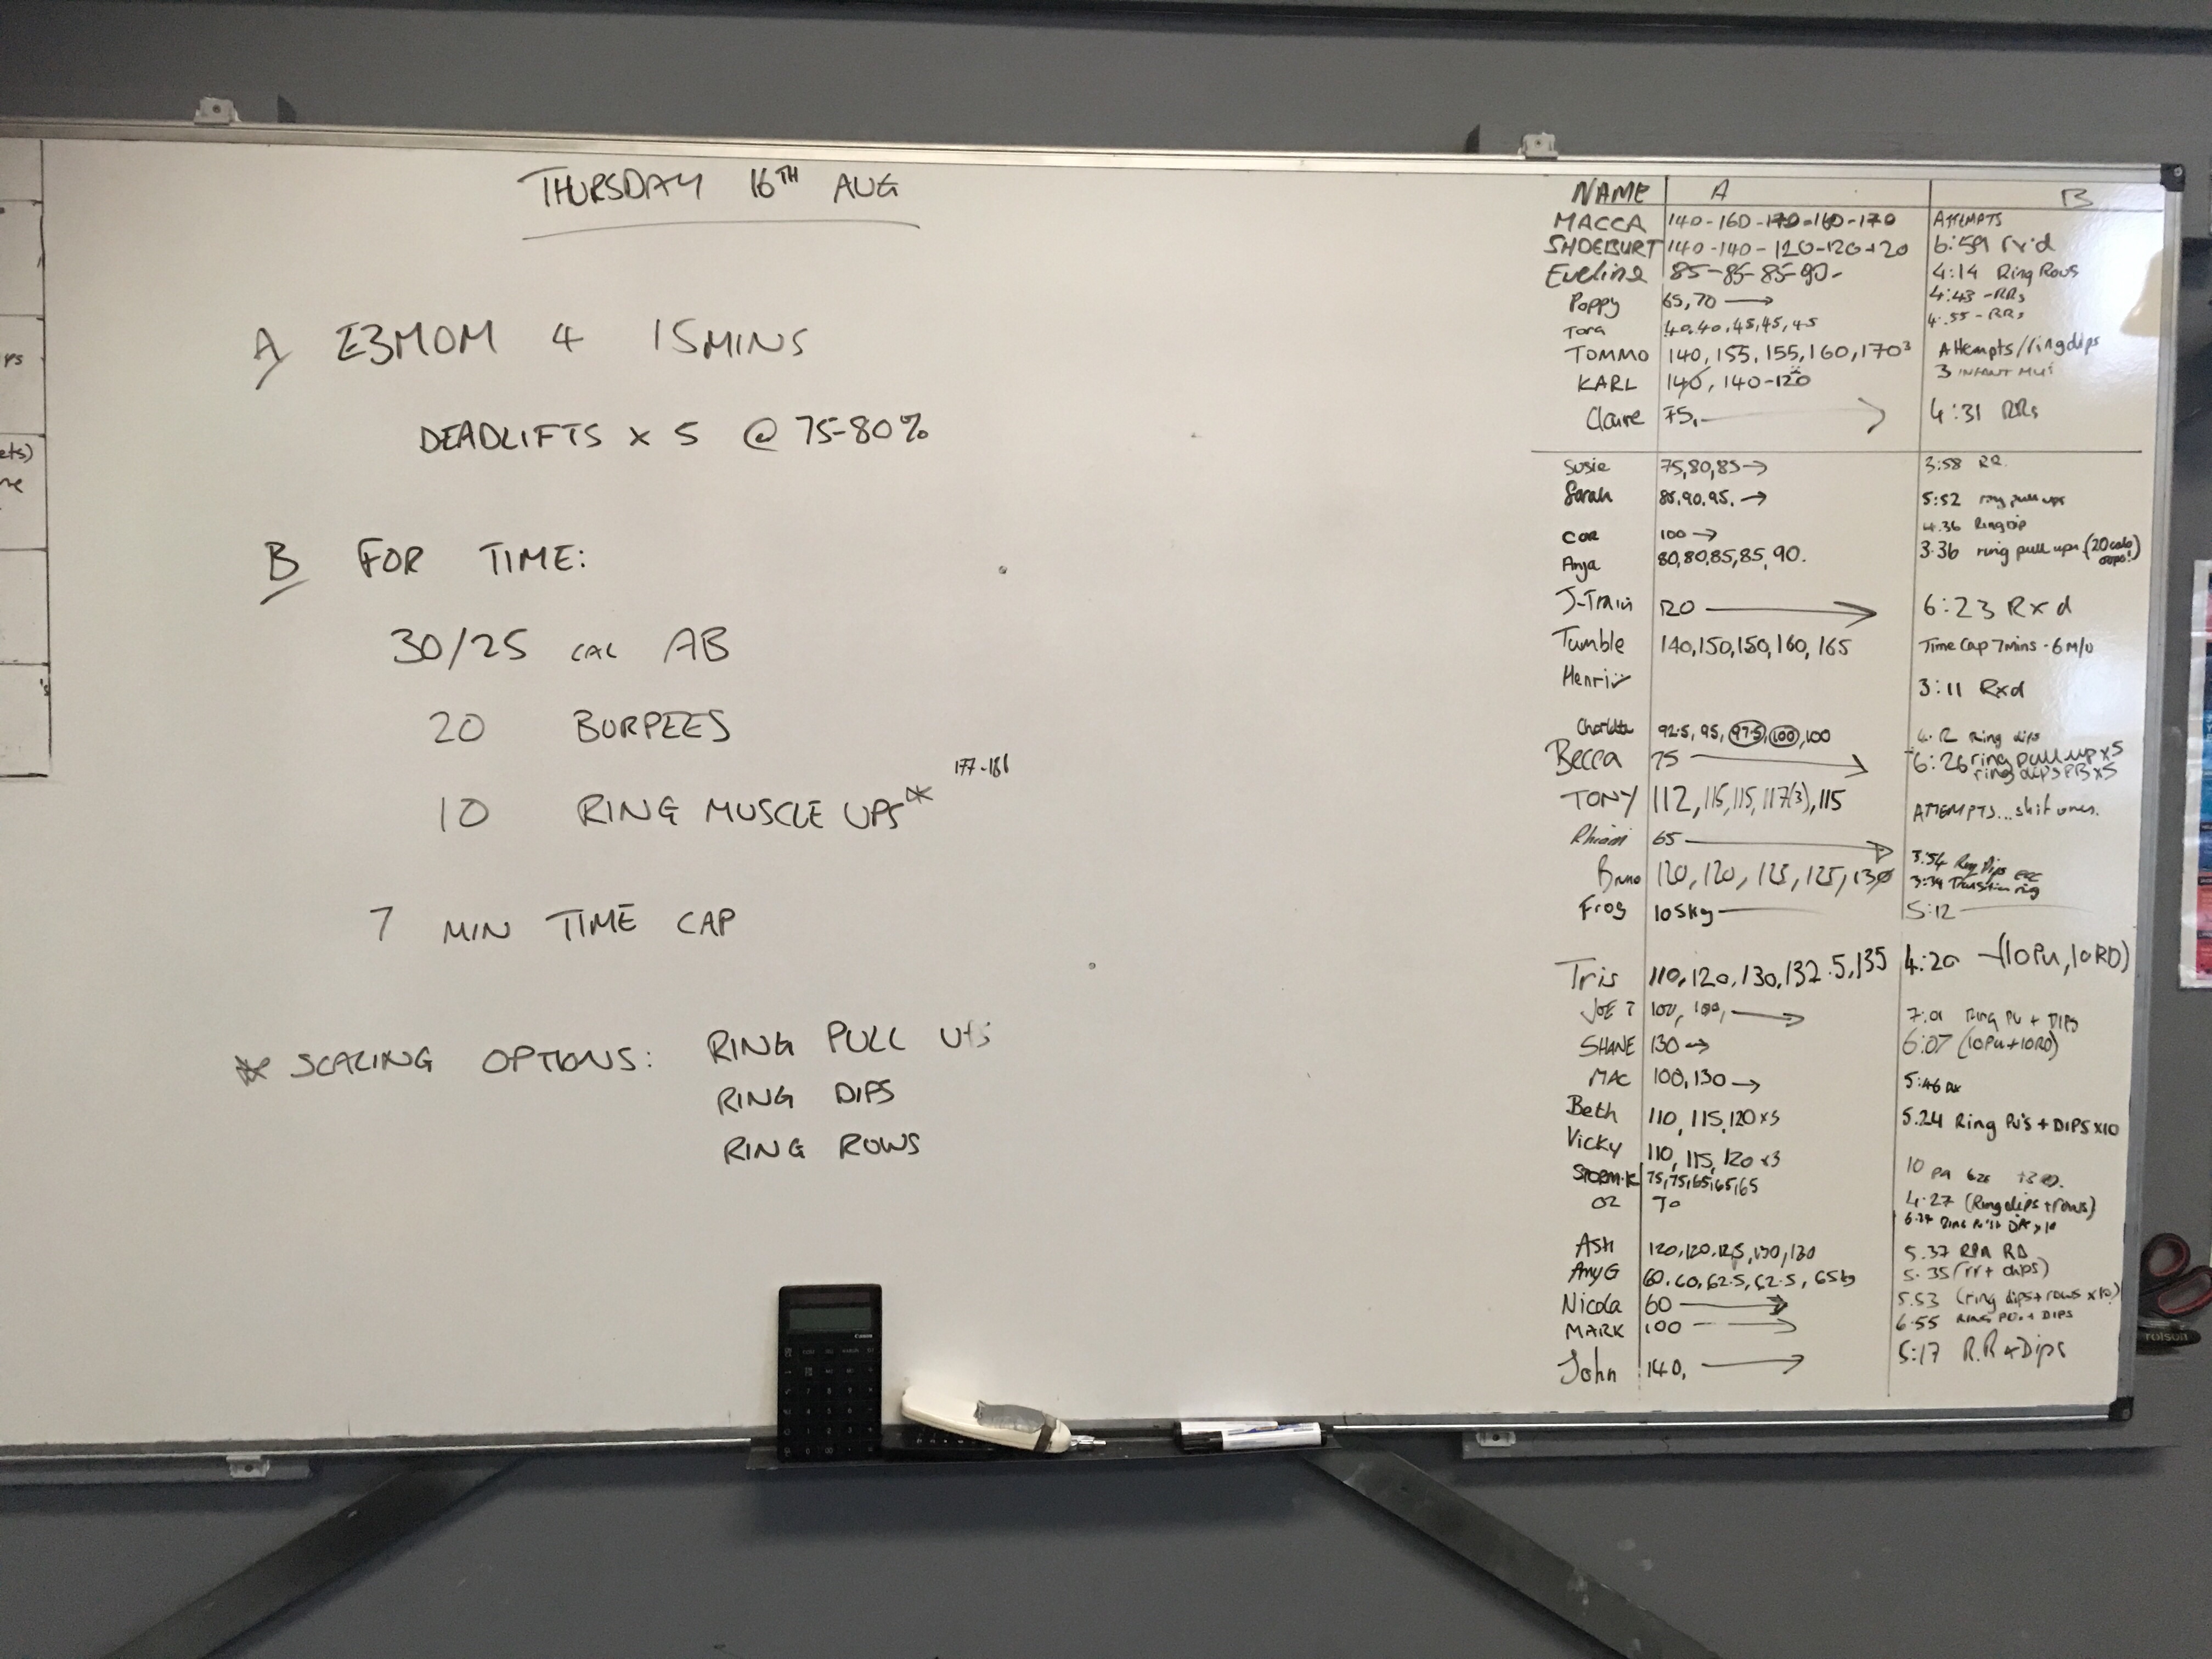 THURSDAY 16TH AUG
A E3MOM 4 15MINS
DEADLIFTS x 5 @ 75-80%
B FOR TIME:
30/25 CAL AB
20 BURPEES
177-181
10 RING MUSCLE UPS*
7 MIN TIME CAP
* SCALING OPTIONS: RING PULL UPS
RING DIPS
RING ROWS
ets)
NAME A B
MACCA 140-160-170-160-170 ATTEMPTS
SHOEBURT 140-140-120-120+20 6:59 rx'd
Eveline 85-85-85-90- 4:14 Ring Rows
Poppy 65,70 → 4:43 -RRs
Tora 40,40,45,45,45 4:55 - RRs
TOMMO 140, 155, 155, 160, 170³ Attempts/ringdips
KARL 140, 140-120 3 INFANT MU's
Claire 75, → 4:31 RRs
Susie 75,80,85 → 3:58 RR
Sarah 85,90,95. → 5:52 ring pull ups
COR 100 → 4.36 Ring Dip
Anja 80,80,85,85,90. 3.36 ring pull ups (20 cals oops!)
J-Train 120 → 6:23 Rxd
Tumble 140,150,150,160,165 Time Cap 7mins - 6 M/U
Henri 3:11 Rxd
92.5, 95, 97.5, 100, 100 Ring dips
Becca 75 → 6:26 ring pull up x5
ring dips PB x5
TONY 112, 115, 115, 117(3), 115 ATTEMPTS...shit ones.
65 → 3:54 Ring Dips
Bruno 120, 120, 125, 125, 130 3:34 Transition ring
Frog 105kg 5:12
Tris 110, 120, 130, 132.5, 135 4:20 -(10Pu, 10RD)
JOE ? 100, 100, → 7:01 Ring PU + DIPS
SHANE 130 → 6:07 (10Pu+10RD)
MAC 100, 130 → 5:46 RX
Beth 110, 115, 120 x3 5.24 Ring Pu's + DIPS x10
Vicky 110, 115, 120 x3
STORM.K 75,75,65,65,65 10
OZ 70 4.27 (Ring dips + rows)
Ring Pu's + x10
ASH 120,120,125,130,130 5.37 RPU RD
AmyG 60, 60, 62.5, 62.5, 65kg 5.35 (rr + dips)
Nicola 60 → 5.53 (ring dips + rows x10)
MARK 100 → 6.55 RING PU + DIPS
John 140, → 5:17 R.R + Dips
Canon
rolson